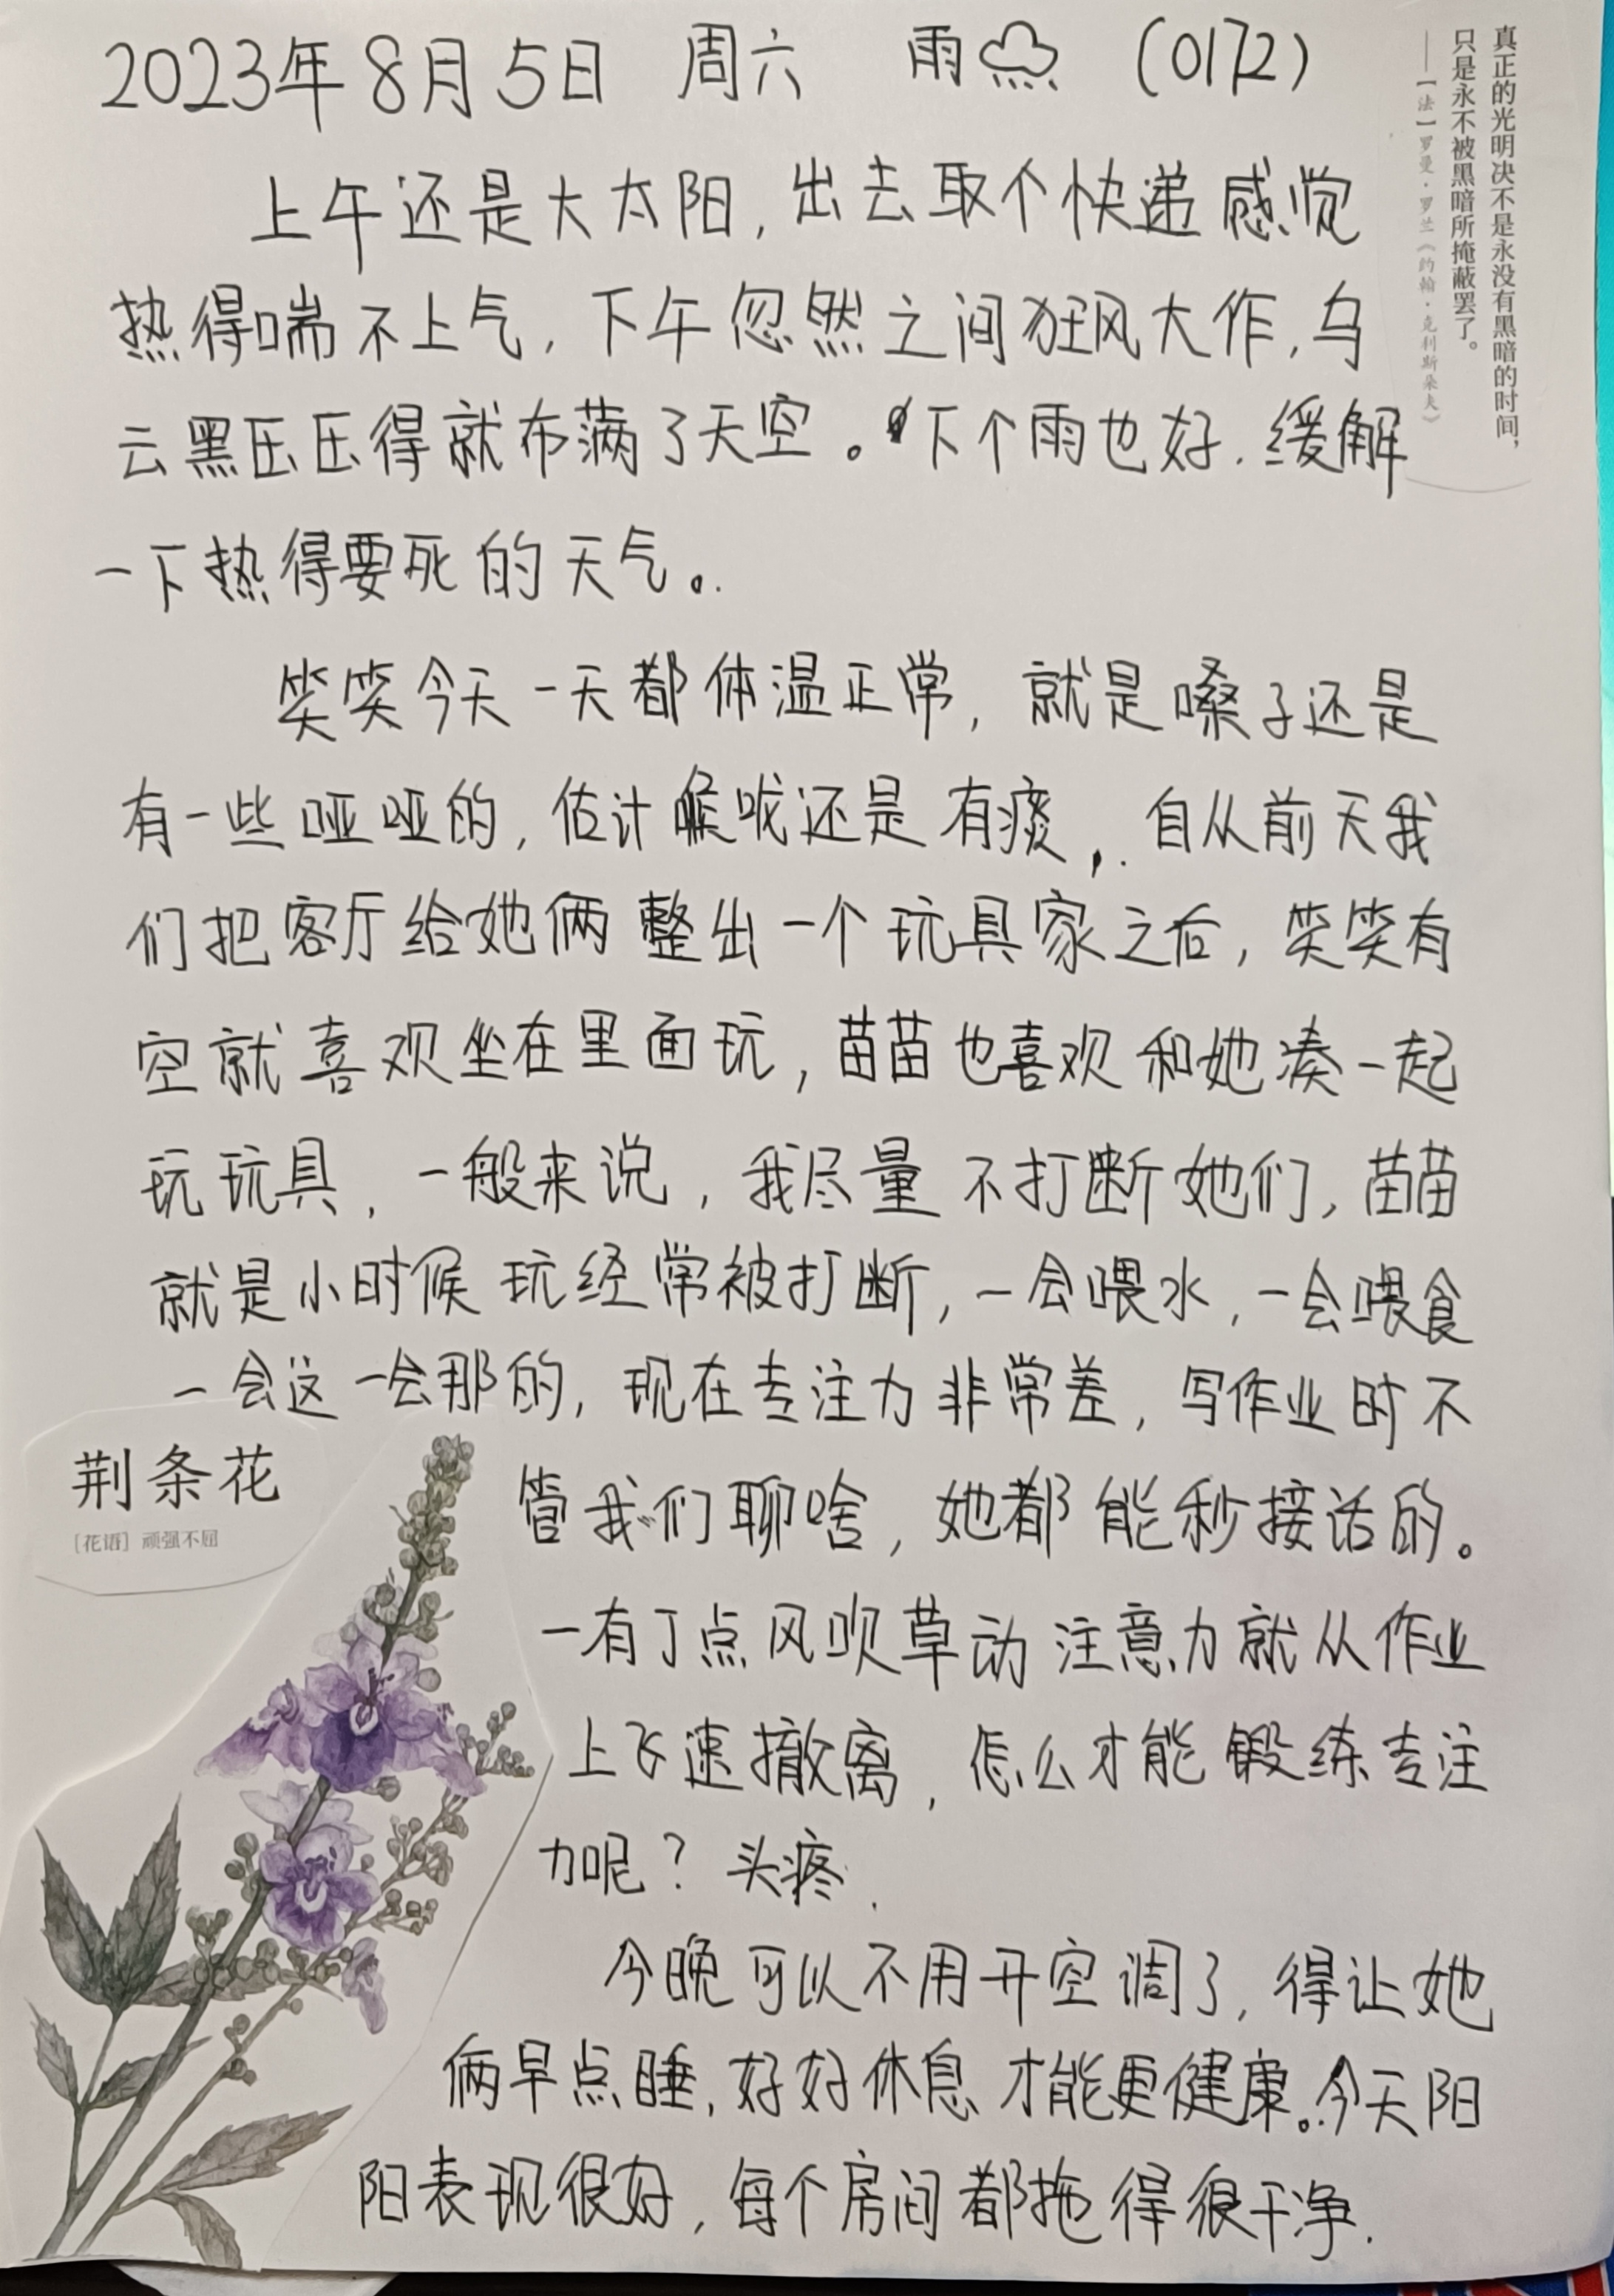 2023年8月5日 周六 雨 (0172)
上午还是大太阳，出去取个快递感觉
热得喘不上气，下午忽然之间狂风大作，乌
云黑压压得就布满了天空。下个雨也好，缓解
一下热得要死的天气。
笑笑今天一天都体温正常，就是嗓子还是
有一些哑哑的，估计喉咙还是有痰，自从前天我
们把客厅给她俩整出一个玩具家之后，笑笑有
空就喜欢坐在里面玩，苗苗也喜欢和她凑一起
玩玩具，一般来说，我尽量不打断她们，苗苗
就是小时候玩经常被打断，一会喂水，一会喂食
一会这一会那的，现在专注力非常差，写作业时不
管我们聊啥，她都能秒接话的。
一有丁点风吹草动注意力就从作业
上飞速撤离，怎么才能锻练专注
力呢？头疼.
今晚可以不用开空调了，得让她
俩早点睡，好好休息才能更健康。今天阳
阳表现很好，每个房间都拖得很干净.
真正的光明决不是永没有黑暗的时间，
只是永不被黑暗所掩蔽罢了。
——[法]罗曼·罗兰《约翰·克利斯朵夫》
荆条花
[花语] 顽强不屈